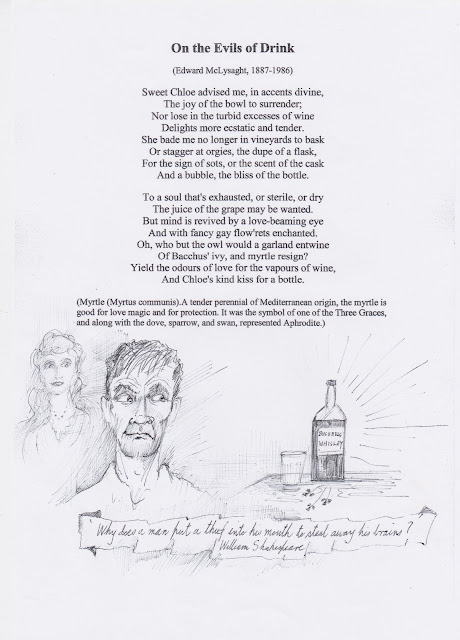 On the Evils of Drink
(Edward McLysaght, 1887-1986)
Sweet Chloe advised me, in accents divine,
The joy of the bowl to surrender;
Nor lose in the turbid excesses of wine
Delights more ecstatic and tender.
She bade me no longer in vineyards to bask
Or stagger at orgies, the dupe of a flask,
For the sign of sots, or the scent of the cask
And a bubble, the bliss of the bottle.
To a soul that's exhausted, or sterile, or dry
The juice of the grape may be wanted.
But mind is revived by a love-beaming eye
And with fancy gay flow'rets enchanted.
Oh, who but the owl would a garland entwine
Of Bacchus' ivy, and myrtle resign?
Yield the odours of love for the vapours of wine,
And Chloe's kind kiss for a bottle.
(Myrtle (Myrtus communis).A tender perennial of Mediterranean origin, the myrtle is
good for love magic and for protection. It was the symbol of one of the Three Graces,
and along with the dove, sparrow, and swan, represented Aphrodite.)
WHISKEY
Why does a man put a thief into his mouth to steal away his brains?
William Shakespeare